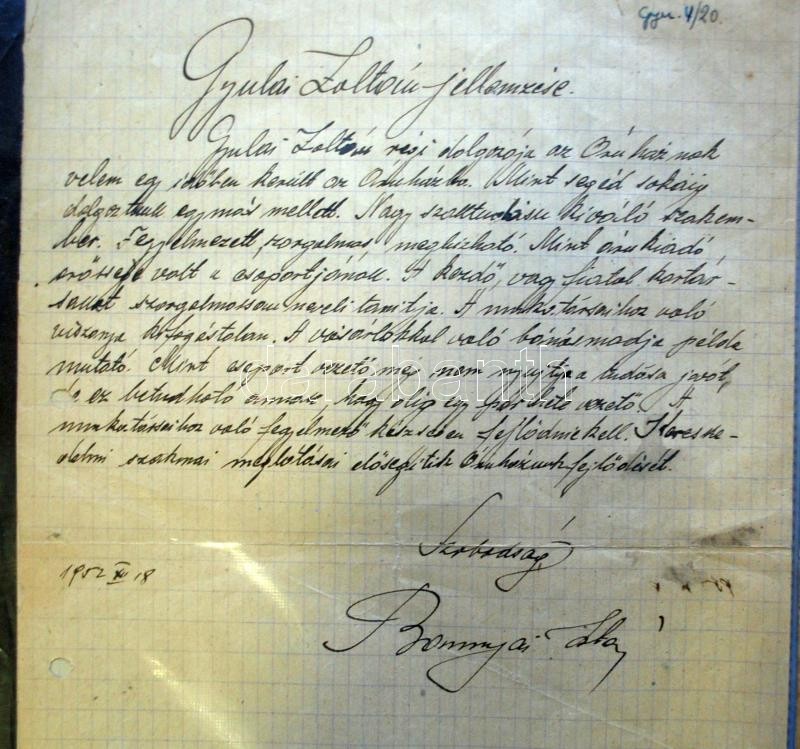 Gyu. 4/20.
Gyulai Zoltán jellemzése.
Gulai Zoltán régi dolgozója az Áruháznak
velem egy időben került az Áruházba. Mint segéd sokáig
dolgoztunk egymás mellett. Nagy szaktudású kiváló szakem-
ber. Fegyelmezett, szorgalmas, megbízható. Mint árukiadó
erőssége volt a csoportjának. A kezdő, vagy fiatal kartár-
sakat szorgalmassan neveli tanitja. A munkatársaihoz való
viszonya kifogástalan. A vásárlókkal való bánásmodja példa
mutató. Mint csoport vezető még nem nyujtja a tudása javát,
ez betudható annak, hogy alig egy pár hete vezető. A
munkatársaihoz való fegyelmező készségen fejlődnie kell. Keres-
kedelmi szakmai meglátásai elősegitik Áruházunk fejlődését.
Szabadság
1952 XII 18
darabanth